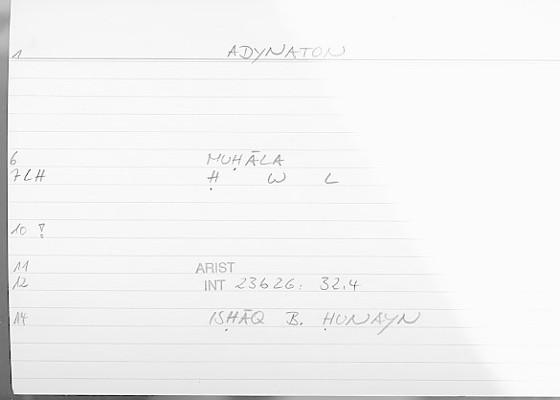 1 ADYNATON
6 MUḤĀLA
7LH Ḥ W L
10 !
11 ARIST
12 INT 23626: 32,4
14 ISḤĀQ B. ḤUNAYN